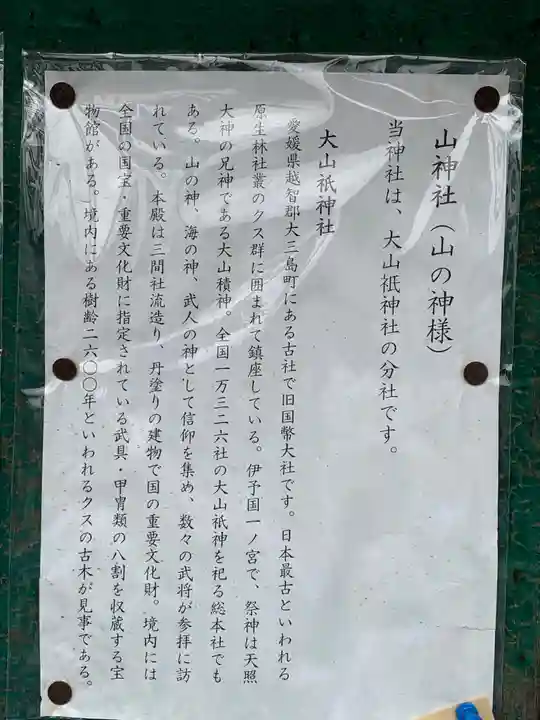 山神社（山の神様）
当神社は、大山祗神社の分社です。
大山祇神社
愛媛県越智郡大三島町にある古社で旧国幣大社です。日本最古といわれる
原生林社叢のクス群に囲まれて鎮座している。伊予国一ノ宮で、祭神は天照
大神の兄神である大山積神。全国一万三二六社の大山祇神を祀る総本社でも
ある。山の神、海の神、武人の神として信仰を集め、数々の武将が参拝に訪
れている。本殿は三間社流造り、丹塗りの建物で国の重要文化財。境内には
全国の国宝・重要文化財に指定されている武具・甲冑類の八割を収蔵する宝
物館がある。境内にある樹齢二六〇〇年といわれるクスの古木が見事である。